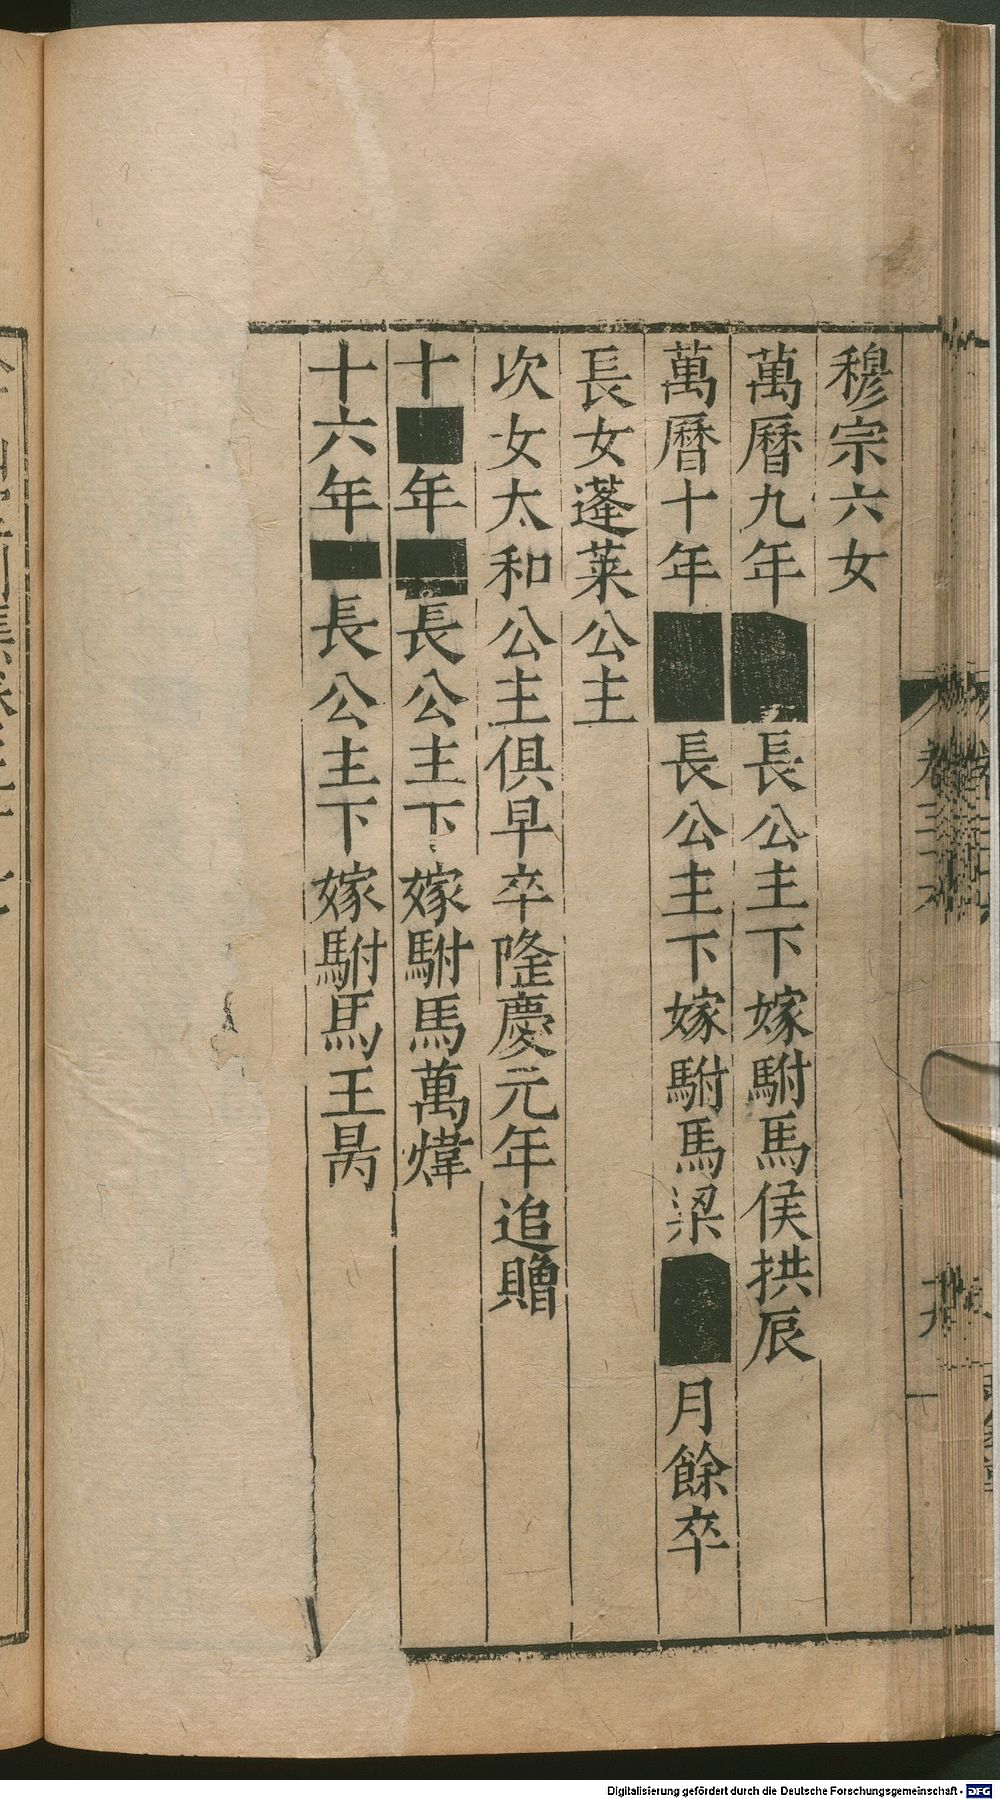 穆宗六女
萬曆九年■■長公主下嫁駙馬侯拱辰
萬曆十年■■長公主下嫁駙馬梁■■月餘卒
長女蓬萊公主
次女太和公主俱早卒隆慶元年追贈
十■年■■長公主下嫁駙馬萬煒
十六年■長公主下嫁駙馬王昺
Digitalisierung gefördert durch die Deutsche Forschungsgemeinschaft - DFG